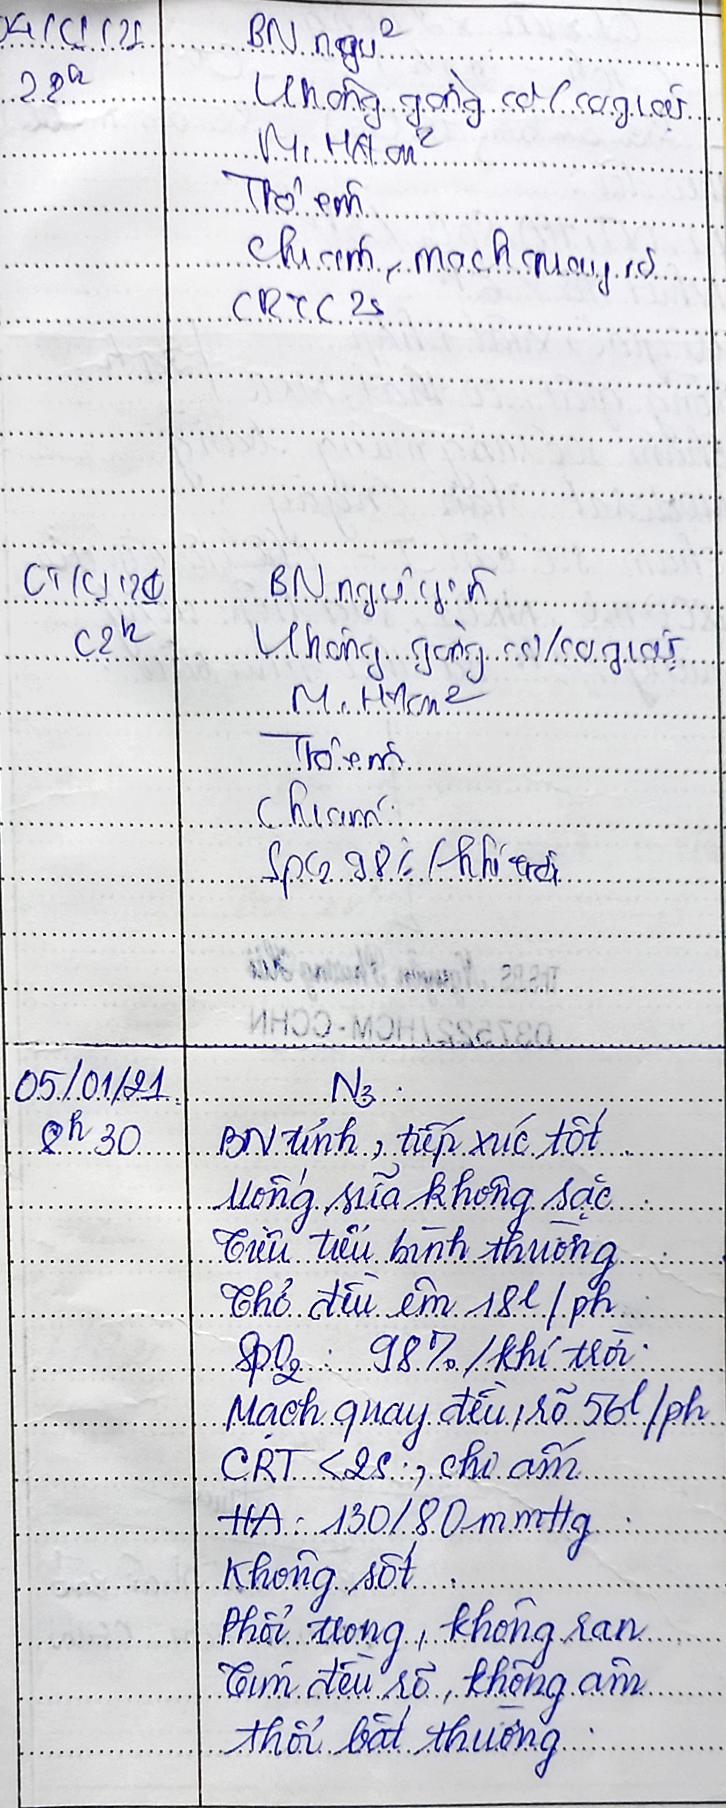 04/01/21 BN ngủ
22h Không gồng cơ/co giật
M, HA ổn
Thở êm
Chi ấm, mạch quay rõ
CRT < 2s
05/01/21 BN ngủ yên
02h Không gồng cơ/co giật
M, HA ổn
Thở êm
Chi ấm
SpO2 98% / khí trời
ThS.BS Nguyễn Phương
037522/HCM-CCHN
05/01/21 N3
8h30 BN tỉnh, tiếp xúc tốt
Uống sữa không sặc
Tiêu tiểu bình thường
Thở đều êm 18l/ph
SpO2: 98% / khí trời
Mạch quay đều, rõ 56l/ph
CRT <2s, chi ấm
HA: 130/80mmHg
Không sốt
Phổi trong, không ran
Tim đều rõ, không âm
thổi bất thường